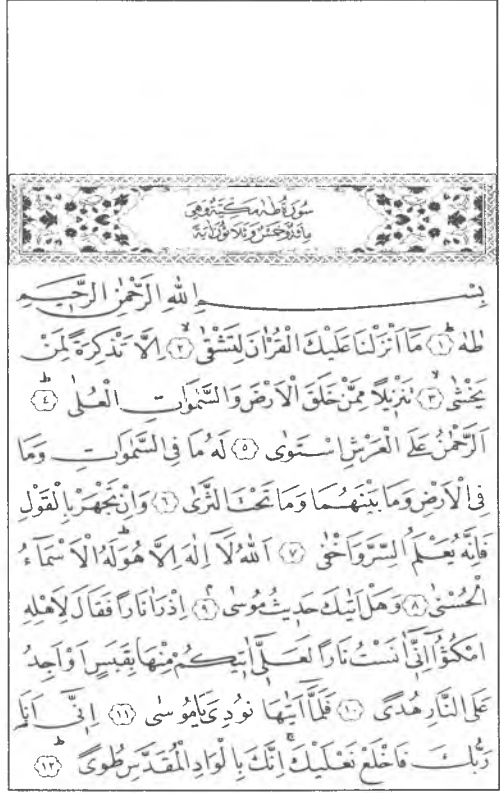 سُورَةُ طٰهٰ مَكِّيَّةٌ وَهِيَ
مِائَةٌ وَخَمْسٌ وَثَلَاثُونَ اٰيَةً
بِسْمِ اللّٰهِ الرَّحْمٰنِ الرَّح۪يمِ
طٰهٰۜ ﴿١﴾ مَٓا اَنْزَلْنَا عَلَيْكَ الْقُرْاٰنَ لِتَشْقٰىۙ ﴿٢﴾ اِلَّا تَذْكِرَةً لِمَنْ
يَخْشٰىۙ ﴿٣﴾ تَنْز۪يلًا مِمَّنْ خَلَقَ الْاَرْضَ وَالسَّمٰوَاتِ الْعُلٰىۜ ﴿٤﴾
اَلرَّحْمٰنُ عَلَى الْعَرْشِ اسْتَوٰى ﴿٥﴾ لَهُ مَا فِي السَّمٰوَاتِ وَمَا
فِي الْاَرْضِ وَمَا بَيْنَهُمَا وَمَا تَحْتَ الثَّرٰى ﴿٦﴾ وَاِنْ تَجْهَرْ بِالْقَوْلِ
فَاِنَّهُ يَعْلَمُ السِّرَّ وَاَخْفٰى ﴿٧﴾ اَللّٰهُ لَٓا اِلٰهَ اِلَّا هُوَۜ لَهُ الْاَسْمَٓاءُ
الْحُسْنٰى ﴿٨﴾ وَهَلْ اَتٰيكَ حَد۪يثُ مُوسٰىۢ ﴿٩﴾ اِذْ رَاٰ نَارًا فَقَالَ لِاَهْلِهِ
امْكُثُٓوا اِنّ۪ٓي اٰنَسْتُ نَارًا لَعَلّ۪ٓي اٰت۪يكُمْ مِنْهَا بِقَبَسٍ اَوْ اَجِدُ
عَلَى النَّارِ هُدًى ﴿١٠﴾ فَلَمَّٓا اَتٰيهَا نُودِيَ يَا مُوسٰى ﴿١١﴾ اِنّ۪ٓي اَنَا۬
رَبُّكَ فَاخْلَعْ نَعْلَيْكَۚ اِنَّكَ بِالْوَادِ الْمُقَدَّسِ طُوًىۜ ﴿١٢﴾